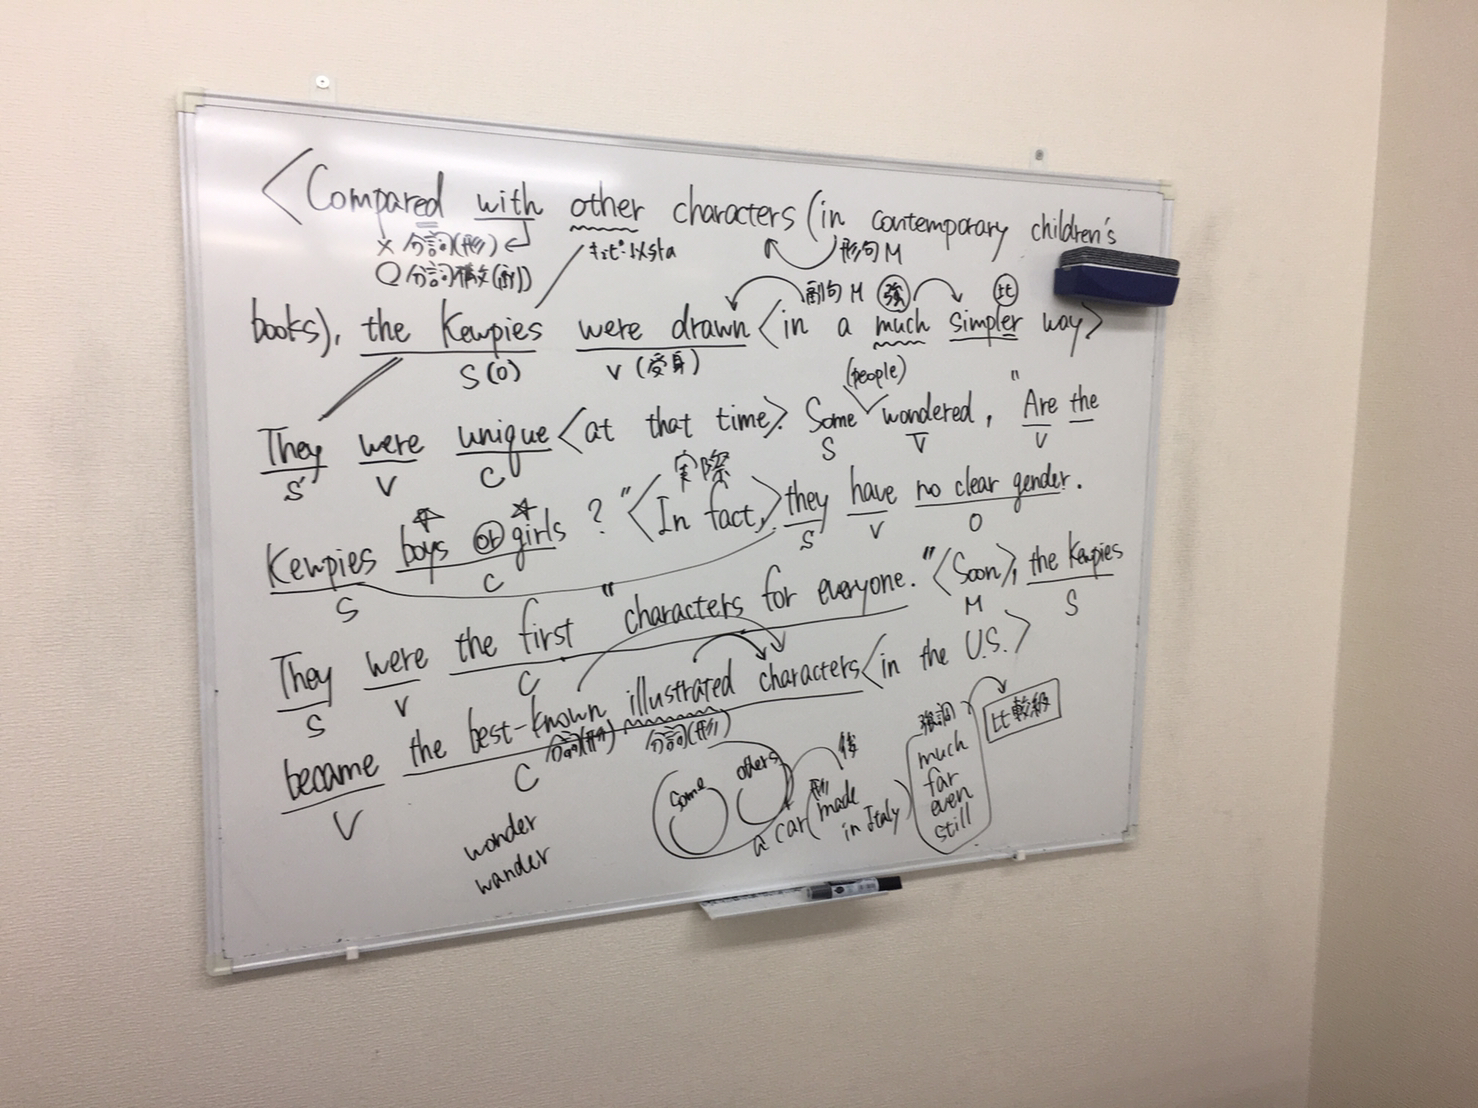 <Compared with other characters (in contemporary children's
× 分詞(形)
○ 分詞構文(副)
キューピー以外の
形句 M
副句 M 強 比
books), the Kewpies were drawn <in a much simpler way>
S(O) V (受身)
(people)
They were unique <at that time>. Some wondered, "Are the
S V C S V V
実際
Kewpies boys or girls ?" <In fact,> they have no clear gender.
S C S V O
They were the first "characters for everyone." <Soon>, the Kewpies
S V C M S
became the best-known illustrated characters <in the U.S.>
V C 分詞(形) 分詞(形)
wonder
wander
some others
後
形
a car (made
in Italy)
強調 比較級
much
far
even
still